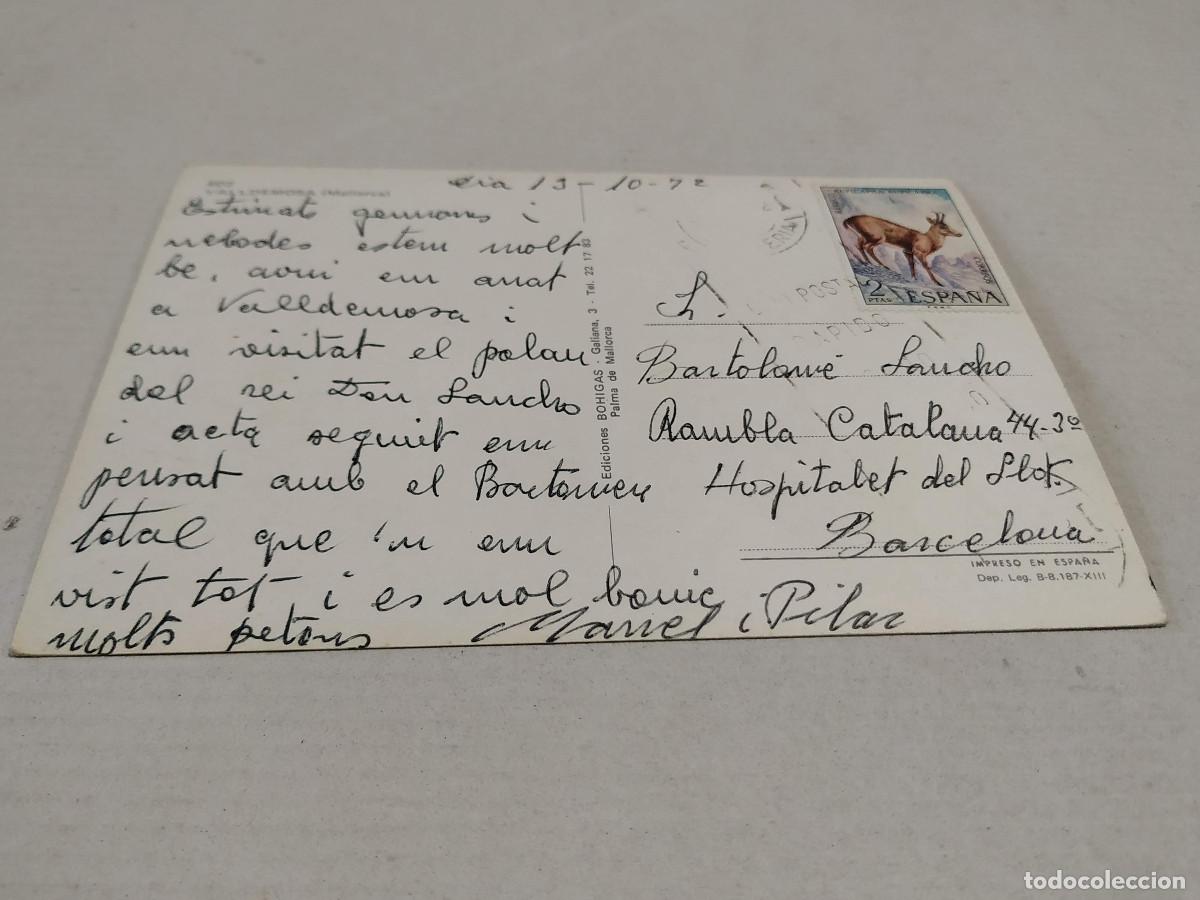 VALLDEMOSA (Mallorca)
Dia 13-10-72
Estimats germans i
nebodes estem molt
be, avui em anat
a Valldemosa i
em visitat el palau
del rei Don Sancho
i acta seguit em
pensat amb el Bartomeu
total que 'n em
vist tot i es mol bonic
molts petons
Manel i Pilar
Ediciones BOHIGAS - Galiana, 3 - Tel. 22 17 83
Palma de Mallorca
CORREOS
2
PTAS
ESPAÑA
POSTA
S.
Bartolomé Sancho
Rambla Catalana 44-3º
Hospitalet del Llob.
Barcelona
IMPRESO EN ESPAÑA
Dep. Leg. B-B.187-XIII
todocoleccion